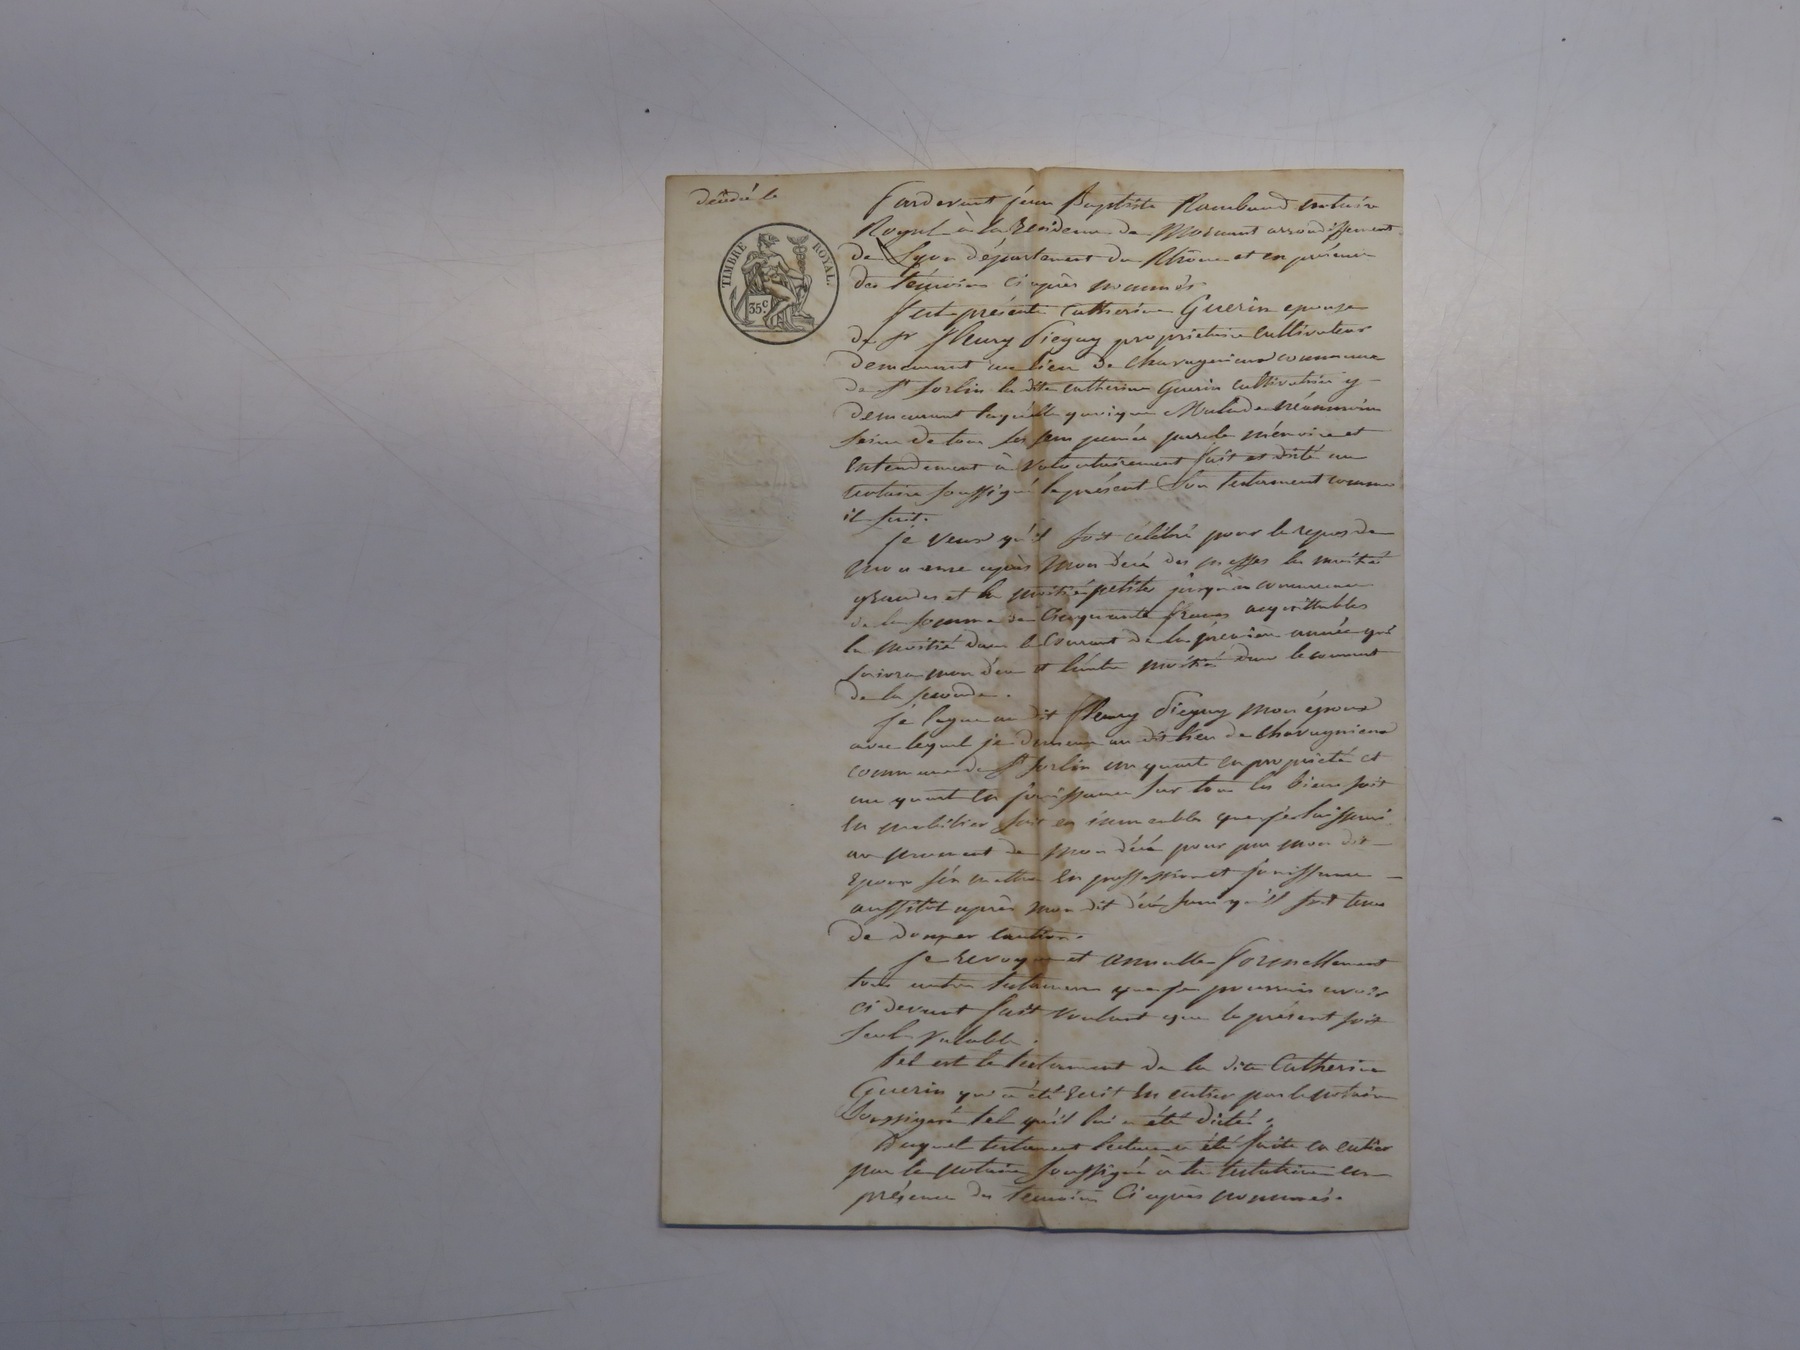 décédé le
TIMBRE ROYAL.
35 c.
Pardevant jean Baptiste Rambaud notaire
Royal à la Residence de Mornant arrondissement
de Lyon département du Rhône et en présence
des témoins ci après nommés
fut présente Catherine Guerin epouse
de sr fleury Pieguy proprietaire cultivateur
demeurant au lieu de Chavagnieux commune
de St Sorlin la dite catherine Guerin cultivatrice y
demeurant laquelle quoique Malade néanmoins
saine de tous ses sens pensée parole mémoire et
Entendement à volontairement fait et dicté au
notaire soussigné le présent Son testament comme
il suit.
je veux qu'il soit célébré pour le repos de
mon ame après mon décé des messes la moitié
grandes et la moitié petites jusqu'à concurrence
de la somme de Cinquante francs acquittables
la moitié dans le Courant de la première année qui
suivra mon décé et l'autre moitié dans le courant
de la seconde.
je legue au dit fleury Pieguy mon époux
avec lequel je demeure au dit lieu de Chavagnieux
commune de St Sorlin un quart en propriété et
un quart en jouissance sur tous les biens soit
en mobilier soit en immeubles que je laisserai
au moment de mon décé pour par mon dit
Epoux s'en mettre en possession et jouissance
aussitôt après mon dit décé sans qu'il soit tenu
de donner caution.
je revoque et annulle formellement
tous autres testaments que je pourrais avoir
ci devant fait voulant que le présent soit
seul valable.
tel est le testament de la dite Catherine
Guerin qui a été Ecrit en entier par le notaire
Soussigné tel qu'il lui a été dicté;
Duquel testament lecture a été faite en entier
par le notaire soussigné à la testatrice en
présence des témoins Ci après nommés.